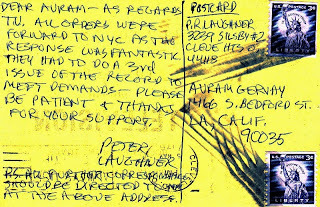 DEAR AVRAM - AS REGARDS
T.V. ALL ORDERS WERE
FORWARD TO NYC AS THE
RESPONSE WAS FANTASTIC
THEY HAD TO DO A 3rd
ISSUE OF THE RECORD TO
MEET DEMANDS - PLEASE
BE PATIENT & THANKS
FOR YOUR SUPPORT.
PETER
LAUGHNER
P.S. ALL FURTHER CORRESPONDENCE
SHOULD BE DIRECTED TO ME
AT THE ABOVE ADDRESS.
POSTCARD
P.R. LAUGHNER
3235 SILSBY #2
CLEVE HTS O.
44118
AVRAM GERNAY
1466 S. BEDFORD ST.
LA, CALIF.
90035
U.S. POSTAGE 3¢
LIBERTY
U.S. POSTAGE 3¢
LIBERTY